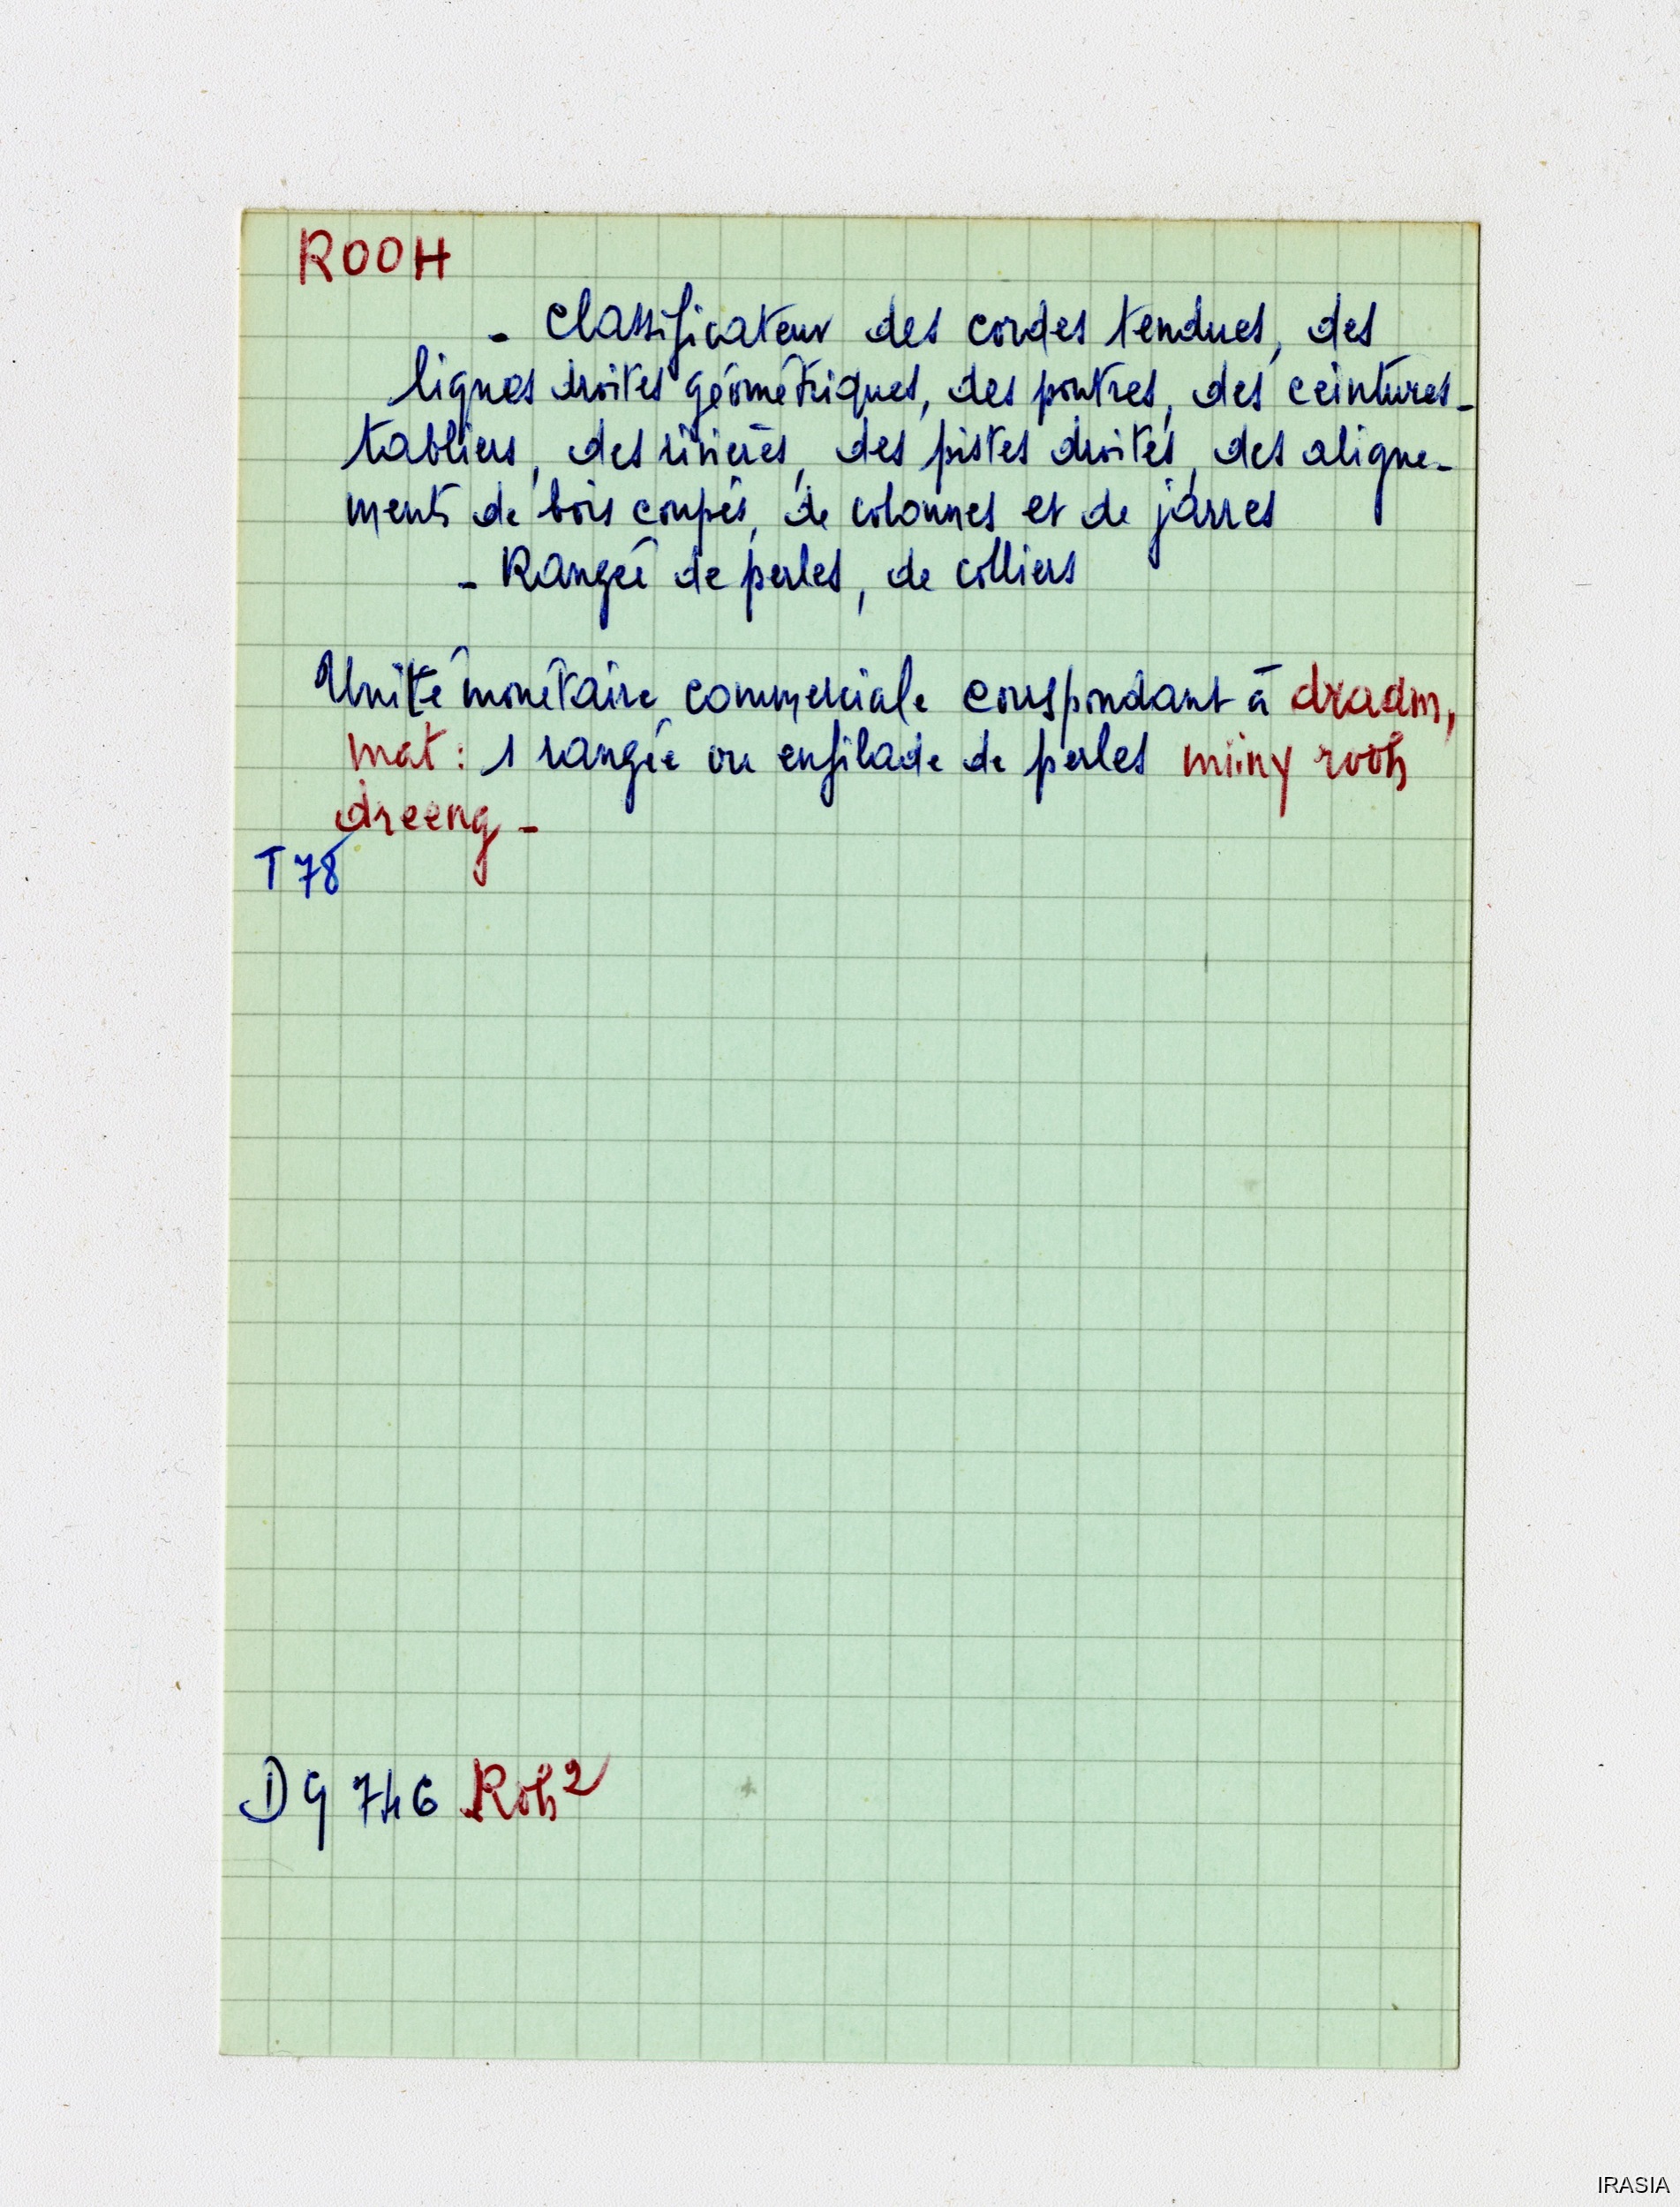 ROOH
- Classificateur des cordes tendues, des
lignes droites géométriques, des poutres, des ceintures-
tabliers, des rivières, des pistes droites, des aligne-
ments de bois coupés, de colonnes et de jarres
- Rangée de perles, de colliers
Unité monétaire commerciale correspondant à draam,
mat : 1 rangée ou enfilade de perles miiny rooh
dreeng -
T 78
DG 746 Roh 2
IRASIA